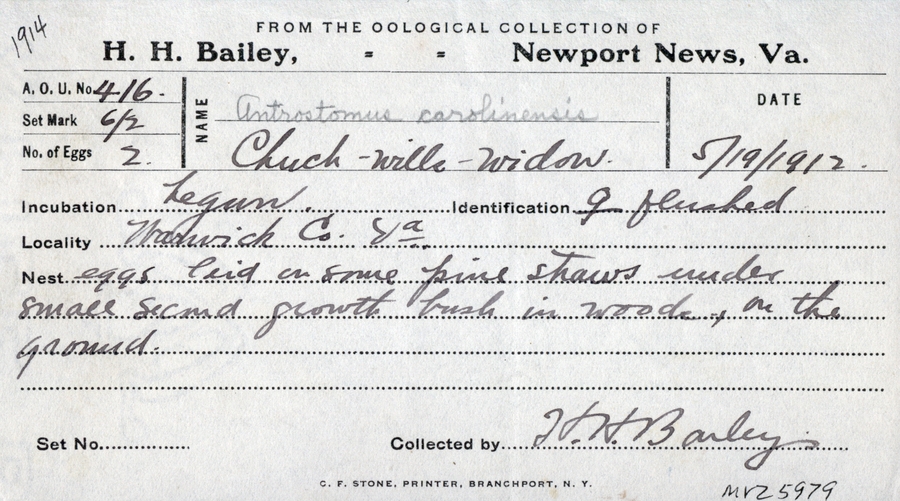 1914
FROM THE OOLOGICAL COLLECTION OF
H. H. Bailey, = = Newport News, Va.
A. O. U. No. 416.
Set Mark 6/2
No. of Eggs 2.
NAME
Antrostomus carolinensis
Chuck-wills-widow.
DATE
5/19/1912.
Incubation begun. Identification ♀ flushed
Locality Warwick Co. Va.
Nest eggs laid on some pine straws under
small second growth bush in woods, on the
ground.
Set No. Collected by H. H. Bailey
C. F. STONE, PRINTER, BRANCHPORT, N. Y.
MVZ 5979